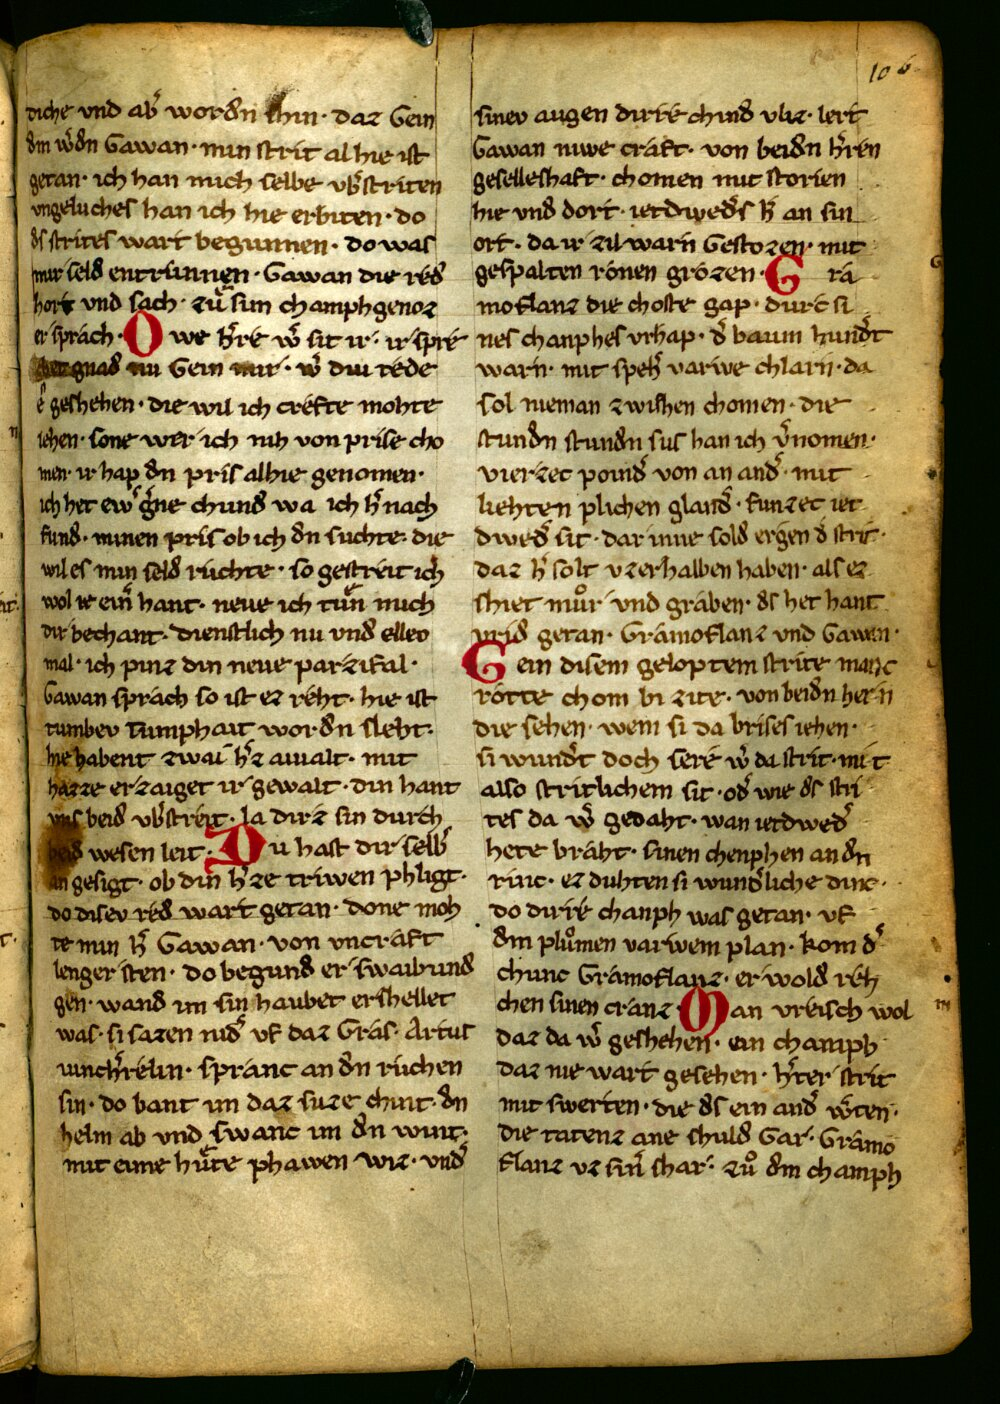 106
diche vnd ab͛ wordn schin · daz Gein
dm w͛dn Gawan · min strit alhie ist
getan · ich han mich selbe vb͛striten
vngeluches han ich hie erbiten · do
ds strites wart begunnen · do was
mir seld entrunnen · Gawan die red
hort vnd sach · zů sim champhgenoz
er sprach · O we h͛re w͛ sit ir · ir spre
chet gnad nu Gein mir · w͛ diu rede
e geshehen · die wil ich crefte mohte
iehen · sone wer ich nih von prise cho
men · ir hap dn pris alhie genomen ·
ich het ew͛ g͛ne chund wa ich h͛nach
fund · minen pris ob ich dn suchte · die
wil es min seld ruchte · so gestreit ich
wol ie ein͛ hant · neve ich tůn mich
dir bechant · dienstlich nu vnd ellev
mal · ich pinz din neve parzifal ·
Gawan sprach so ist ez reht · hie ist
tumbev Tumphait wordn sleht ·
hie habent zwai h͛z aiualt · mit
hazze erzaiget ir gewalt · din hant
vns beid vb͛streit · la dirz sin durch
beid wesen leit · Du hast dir selb͛
an gesigt · ob din h͛ze triwen phligt ·
do disev red wart getan · done moh
te min h͛ Gawan · von vncraft
lenger sten · do begund er swaibund
gen · wand im sin haubet ershellet
was · si sazen nid͛ vf daz Gras · Artus
iunch͛relin · spranc an dn ruchen
sin · do bant im daz suze chint · dn
helm ab vnd swanc im dn wint ·
mit eime hůte phawen wiz · vnd
sinev augen dirre chind vliz · lert
Gawan niwe craft · von beidn h͛ren
geselleshaft · chomen mit storien
hie vnd dort · ietdweds h͛ an sin
ort · da ir zil warn Gestozen · mit
gespalten ronen grozen · Gra
moflanz die choste gap · durt si
nes chanphes vrhap · d͛ baum hund͛t
warn · mit speh͛ varwe chlarn · da
sol nieman zwishen chomen · die
stundn stundn sus han ich v͛nomen ·
vierzec poind͛ von an and͛ · mit
liehten plichen gland͛ · funzec iet
dwed͛ sit · dar inne sold ergen d͛ strit ·
daz h͛ solt vzerhalben haben · als ez
shiet můr vnd graben · ds het hant
vrid getan · Gramoflanz vnd Gawan ·
Gein disem geloptem strite manc
rotte chom bi zite · von beidn hern
die sehen · wem si da brises iehen ·
si wund͛t doch sere w͛ da strit · mit
also stritlichem sit · od͛ wie ds stri
tes da w͛ gedaht · wan ietdwed͛
hete braht · sinen chenphen an dn
rinc · ez duhten si wund͛liche dinc ·
do dirre chanph was getan · vf
dm plůmen varwem plan · kom d͛
chunc Gramoflanz · er wold reh
chen sinen cranz · Man vreisch wol
daz da w͛ geshehen · ein champh
daz nie wart gesehen · h͛ter strit
mit swerten · die ds ein and͛ w͛ten ·
die tatenz ane shuld Gar · Gramo
flanz vz sin͛ shar · zů dm champh